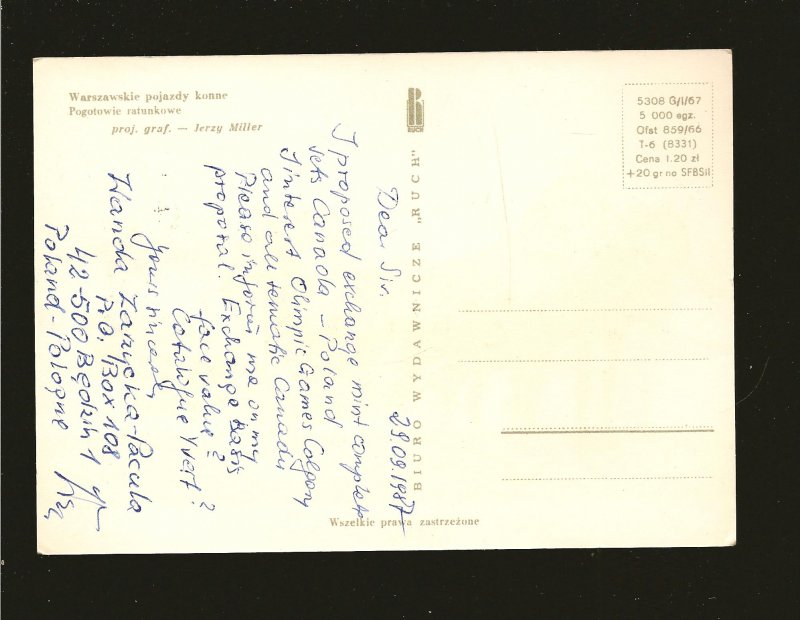 Warszawskie pojazdy konne
Pogotowie ratunkowe
proj. graf. — Jerzy Miller
RUCH
5308 G/I/67
5 000 egz.
Ofst 859/66
T-6 (8331)
Cena 1.20 zł
+20 gr na SFBSiI
BIURO WYDAWNICZE „RUCH"
Wszelkie prawa zastrzeżone
29.09.1987
Dear Sir.
I proposed exchange mint complete
sets Canada - Poland
I interest Olimpic Games Calgary
and all tematic Canada
Please inform me on my
proposal. Exchange basis
face value?
Catalogue Yvert?
Yours sincerely
Wanda Zarycka-Pacula
P.O. Box 108
42-500 Będzin 1
Poland - Pologne